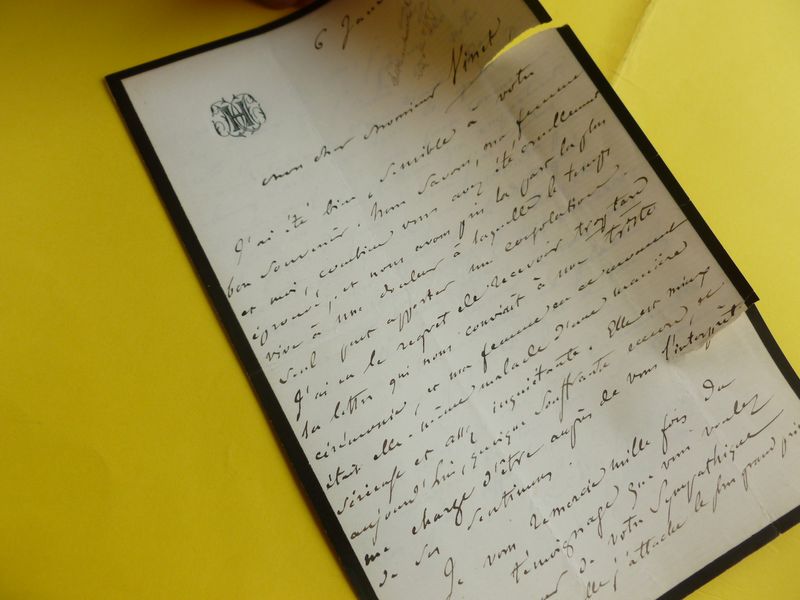 6 Janv
H
Mon cher Monsieur Vinet,
J'ai été bien sensible à votre
bon souvenir. Nous savons, ma femme
et moi, combien vous avez été cruellement
éprouvé, et nous avons pris la part la plus
vive à une douleur à laquelle le temps
seul peut apporter une consolation.
J'ai eu le regret de recevoir trop tard
la lettre qui nous conviait à une triste
cérémonie, et ma femme en ce moment
était elle-même malade d'une manière
sérieuse et assez inquiétante. Elle est mieux
aujourd'hui, quoique souffrante encore, et
me charge d'être auprès de vous l'interprète
de ses sentimens.
Je vous remercie mille fois du
témoignage que vous voulez
de votre sympathique
j'attache le plus grand prix